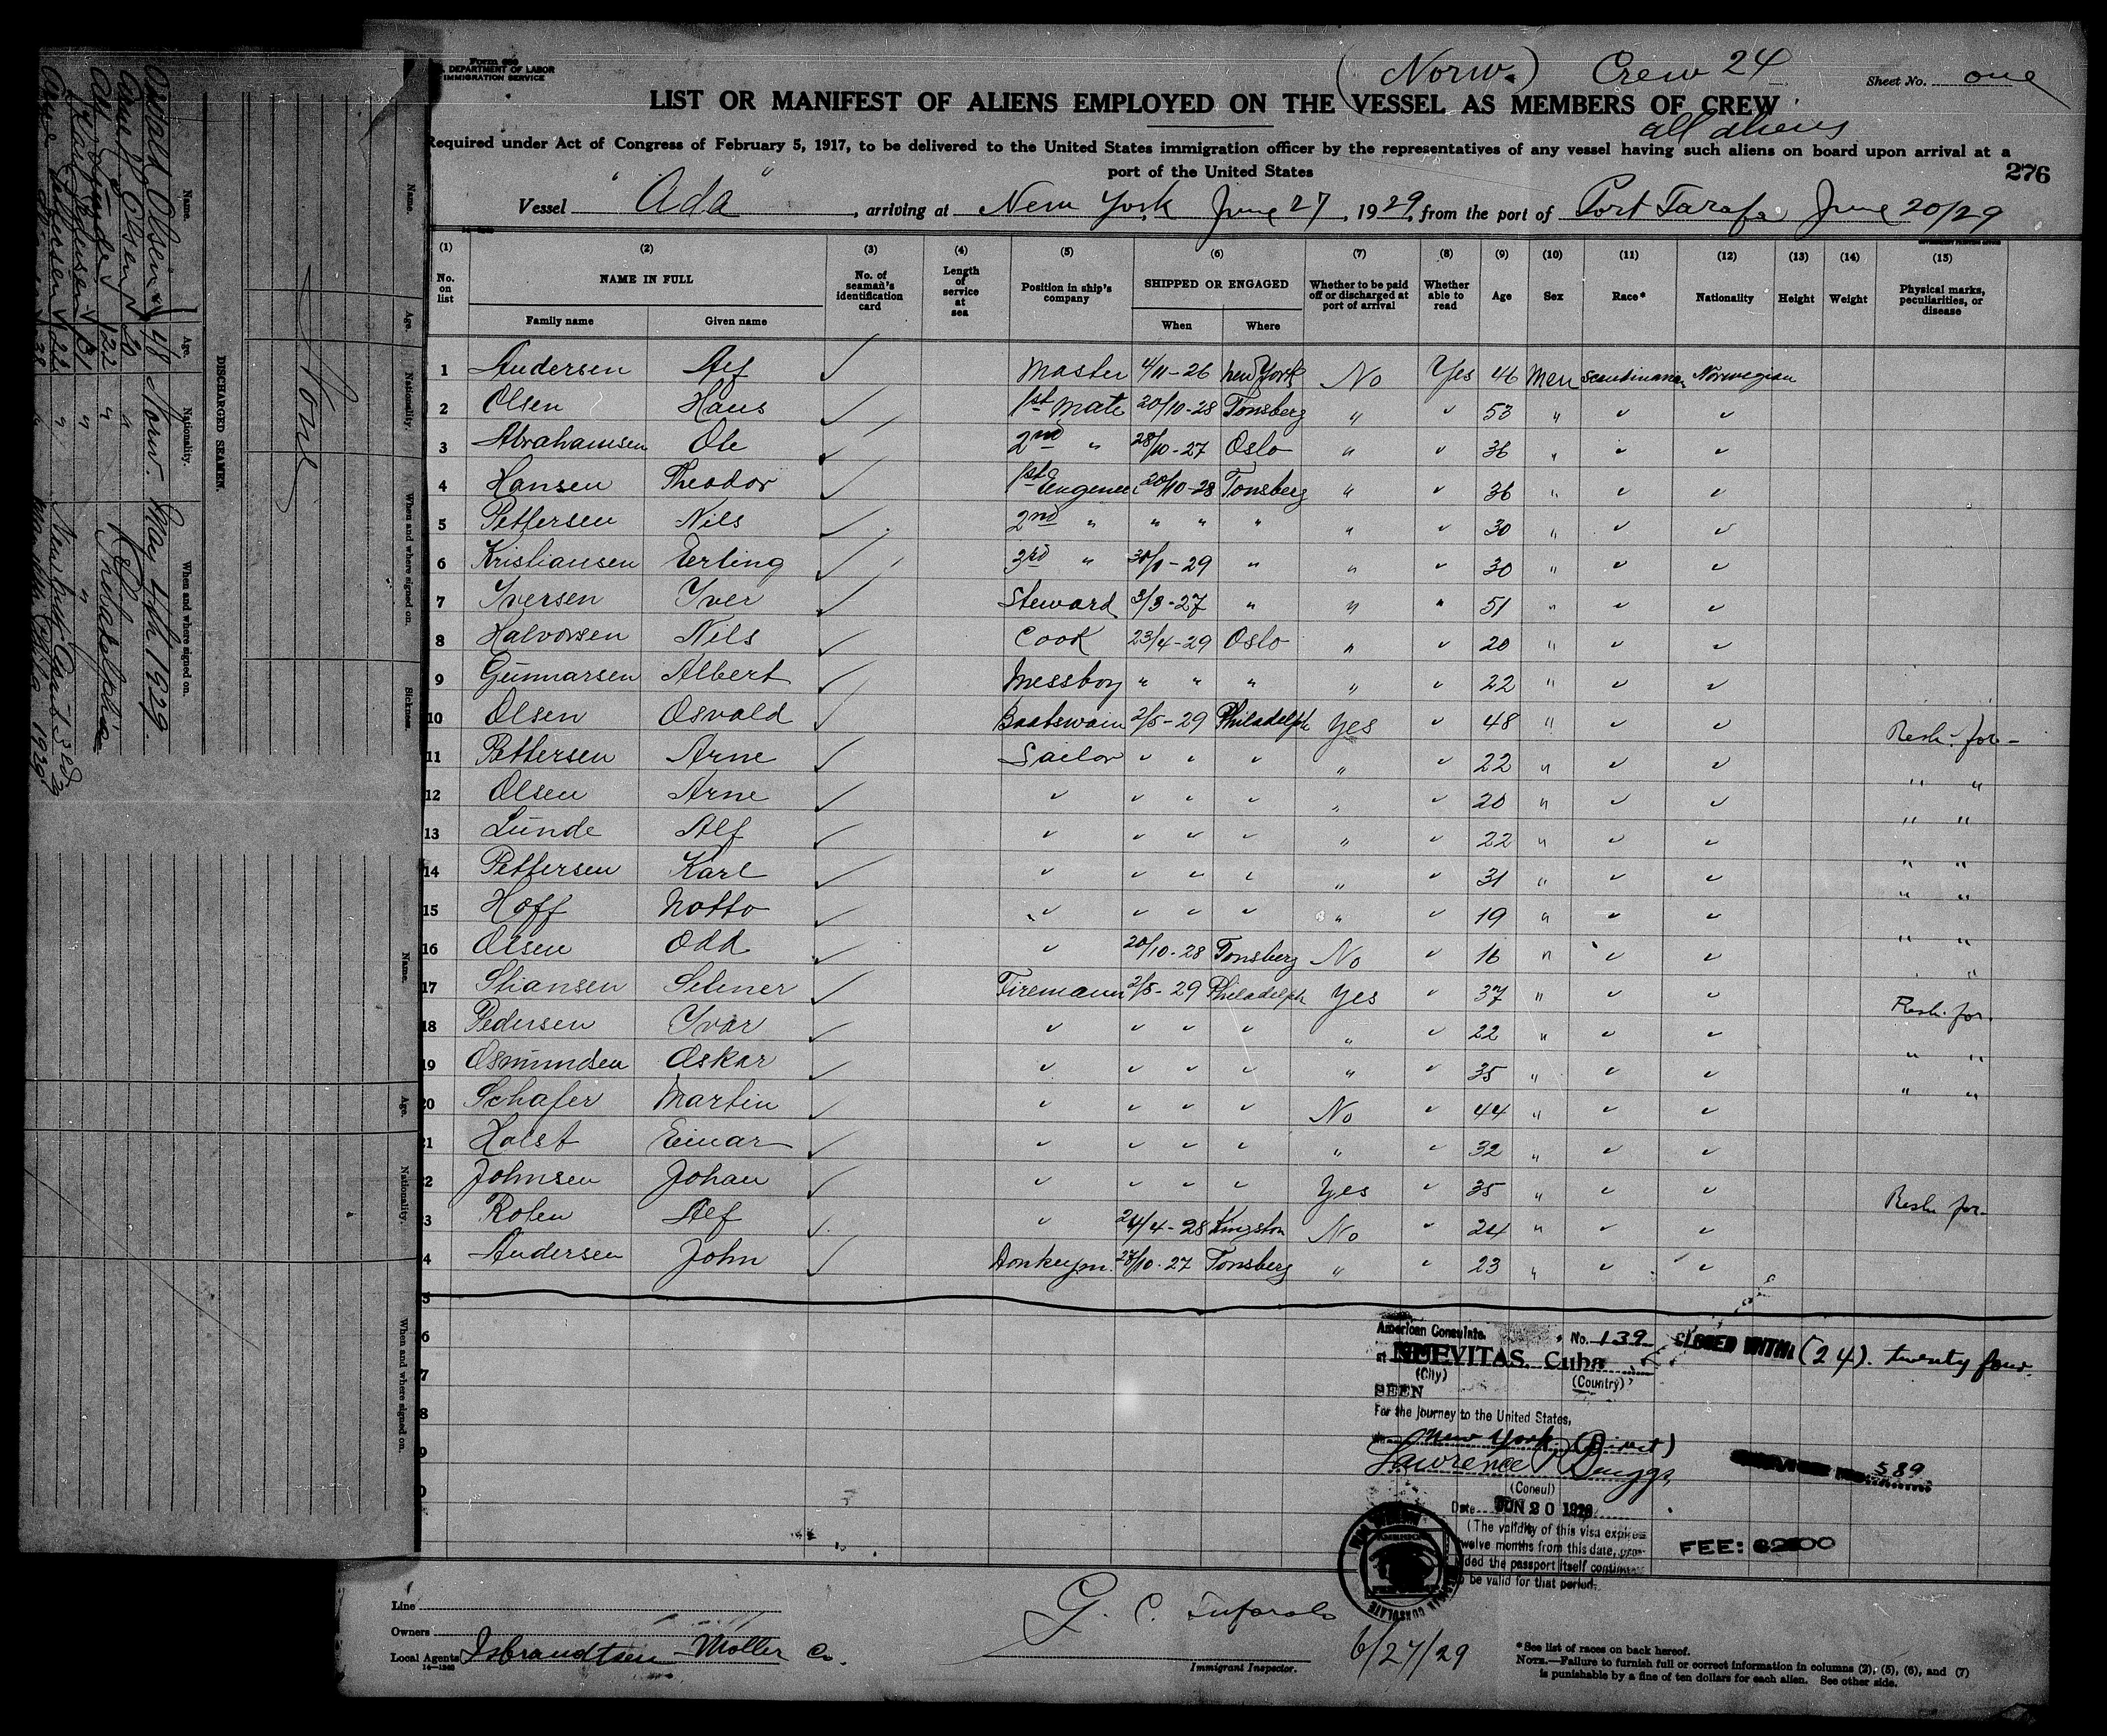 Form 689
U.S. DEPARTMENT OF LABOR
IMMIGRATION SERVICE
(Norw.) Crew 24
Sheet No. one
LIST OR MANIFEST OF ALIENS EMPLOYED ON THE VESSEL AS MEMBERS OF CREW
all aliens
Required under Act of Congress of February 5, 1917, to be delivered to the United States immigration officer by the representatives of any vessel having such aliens on board upon arrival at a
port of the United States
276
Vessel "Ada", arriving at New York June 27, 1929, from the port of Port Tarafa June 20/29
(1) (2) (3) (4) (5) (6) (7) (8) (9) (10) (11) (12) (13) (14) (15)
No. on list NAME IN FULL No. of seaman's identification card Length of service at sea Position in ship's company SHIPPED OR ENGAGED Whether to be paid off or discharged at port of arrival Whether able to read Age Sex Race* Nationality Height Weight Physical marks, peculiarities, or disease
Family name Given name When Where
1 Andersen Alf ✓ Master 4/11-26 New York No Yes 46 Men Scandinavian Norwegian
2 Olsen Hans ✓ 1st Mate 20/10-28 Tonsberg " " 53 " " "
3 Abrahamsen Ole ✓ 2nd " 28/10-27 Oslo " " 36 " " "
4 Hansen Theodor ✓ 1st Engeneer 20/10-28 Tonsberg " " 36 " " "
5 Pettersen Nils ✓ 2nd " " " " " " 30 " " "
6 Kristiansen Erling ✓ 3rd " 30/1-29 " " " 30 " " "
7 Iversen Iver ✓ Steward 3/3-27 " " " 51 " " "
8 Halvorsen Nils ✓ Cook 23/4-29 Oslo " " 20 " " "
9 Gunnarsen Albert ✓ Messboy " " " " " 22 " " "
10 Olsen Osvald ✓ Baatswain 2/5-29 Philadelph Yes " 48 " " " Resh. for-
11 Pettersen Arne ✓ Sailor " " " " " 22 " " " " "
12 Olsen Arne ✓ " " " " " " 20 " " " " "
13 Lunde Alf ✓ " " " " " " 22 " " " " "
14 Pettersen Karl ✓ " " " " " " 31 " " " " "
15 Hoff Notto ✓ " " " " " " 19 " " " " "
16 Olsen Odd ✓ " 20/10-28 Tonsberg No " 16 " " " "
17 Stiansen Selmer ✓ Firemann 2/5-29 Philadelph Yes " 37 " " " Resh. for.
18 Pedersen Yvar ✓ " " " " " " 22 " " " " "
19 Osmundsen Oskar ✓ " " " " " " 35 " " " " "
20 Schafer Martin ✓ " " " " No " 44 " " "
21 Holst Einar ✓ " " " " " " 32 " " "
2 Johnsen Johan ✓ " " " " Yes " 35 " " " Resh for-
3 Alf ✓ " 24/4-28 Kingston No " 24 " " "
4 Andersen John ✓ Donkeym. 28/10-27 Tonsberg " " 23 " " "
5
6
7
8
9
0
American Consulate. No. 139
at NUEVITAS, Cuba
(City) (Country)
SEEN
For the journey to the United States,
New York (Direct)
Lawrence P. Briggs
(Consul)
Date JUN 20 1929
(The validity of this visa expires
twelve months from this date, pro-
vided the passport itself continues
to be valid for that period.
CLOSED WITH (24). twenty four.
589
FEE:
AMERICAN CONSULATE
Line
Owners
Local Agents Isbrandtsen-Moller Co.
14-1240
G. C.
Immigrant Inspector.
6/27/29
*See list of races on back hereof.
NOTE.—Failure to furnish full or correct information in columns (2), (5), (6), and (7)
is punishable by a fine of ten dollars for each alien. See other side.
Name. Age. Nationality. When and where signed on. Sickness.
None
DISCHARGED SEAMEN.
Name. Age. Nationality. When and where signed on.
Osvald Olsen 48 Norw. May 4th 1929.
Arne Olsen 20 "
Alf Lunde 22 " Philadelphia
Karl Pettersen 31 "
Name. Age. Nationality. When and where signed on.